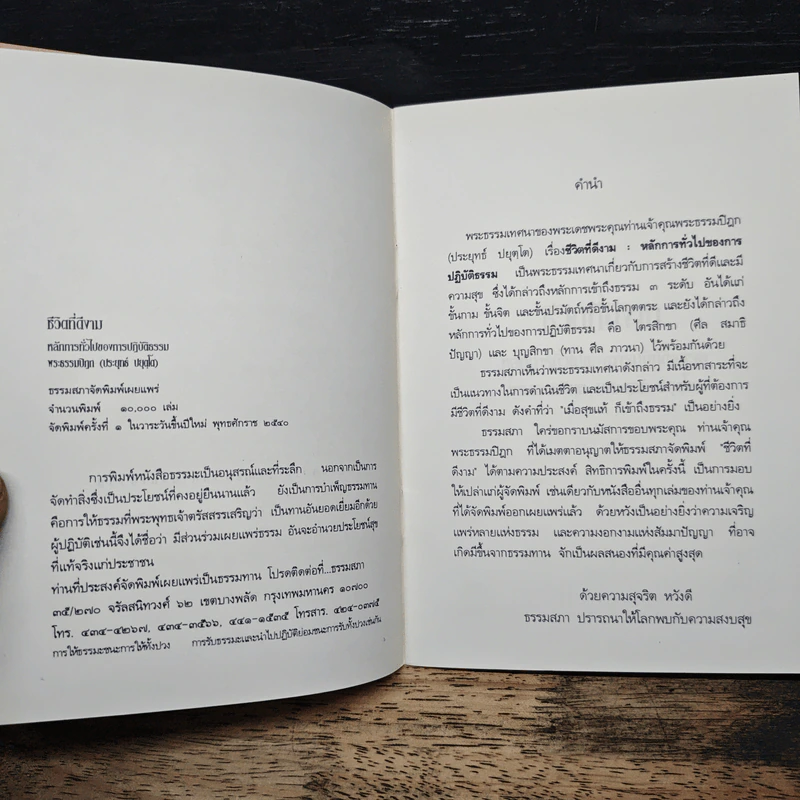 ชีวิตที่ดีงาม
หลักการทั่วไปของการปฏิบัติธรรม
พระธรรมปิฎก (ประยุทธ์ ปยุตฺโต)
ธรรมสภาจัดพิมพ์เผยแพร่
จำนวนพิมพ์ ๑๐,๐๐๐ เล่ม
จัดพิมพ์ครั้งที่ ๑ ในวาระวันขึ้นปีใหม่ พุทธศักราช ๒๕๔๐
การพิมพ์หนังสือธรรมะเป็นอนุสรณ์และที่ระลึก นอกจากเป็นการ
จัดทำสิ่งซึ่งเป็นประโยชน์ที่คงอยู่ยืนนานแล้ว ยังเป็นการบำเพ็ญธรรมทาน
คือการให้ธรรมที่พระพุทธเจ้าตรัสสรรเสริญว่า เป็นทานอันยอดเยี่ยมอีกด้วย
ผู้ปฏิบัติเช่นนี้จึงได้ชื่อว่า มีส่วนร่วมเผยแพร่ธรรม อันจะอำนวยประโยชน์สุข
ที่แท้จริงแก่ประชาชน
ท่านที่ประสงค์จัดพิมพ์เผยแพร่เป็นธรรมทาน โปรดติดต่อที่...ธรรมสภา
๓๕/๒๗๐ จรัลสนิทวงศ์ ๖๒ เขตบางพลัด กรุงเทพมหานคร ๑๐๗๐๐
โทร. ๔๓๔-๔๒๖๗, ๔๓๔-๓๕๖๖, ๔๔๑-๑๕๓๕ โทรสาร. ๔๒๔-๐๓๗๕
การให้ธรรมะชนะการให้ทั้งปวง การรับธรรมะและนำไปปฏิบัติย่อมชนะการรับทั้งปวงเช่นกัน
คำนำ
พระธรรมเทศนาของพระเดชพระคุณท่านเจ้าคุณพระธรรมปิฎก
(ประยุทธ์ ปยุตฺโต) เรื่องชีวิตที่ดีงาม : หลักการทั่วไปของการ
ปฏิบัติธรรม เป็นพระธรรมเทศนาเกี่ยวกับการสร้างชีวิตที่ดีและมี
ความสุข ซึ่งได้กล่าวถึงหลักการเข้าถึงธรรม ๓ ระดับ อันได้แก่
ขั้นกาม ขั้นจิต และขั้นปรมัตถ์หรือขั้นโลกุตตระ และยังได้กล่าวถึง
หลักการทั่วไปของการปฏิบัติธรรม คือ ไตรสิกขา (ศีล สมาธิ
ปัญญา) และ บุญสิกขา (ทาน ศีล ภาวนา) ไว้พร้อมกันด้วย
ธรรมสภาเห็นว่าพระธรรมเทศนาดังกล่าว มีเนื้อหาสาระที่จะ
เป็นแนวทางในการดำเนินชีวิต และเป็นประโยชน์สำหรับผู้ที่ต้องการ
มีชีวิตที่ดีงาม ดังคำที่ว่า "เมื่อสุขแท้ ก็เข้าถึงธรรม" เป็นอย่างยิ่ง
ธรรมสภา ใคร่ขอกราบนมัสการขอบพระคุณ ท่านเจ้าคุณ
พระธรรมปิฎก ที่ได้เมตตาอนุญาตให้ธรรมสภาจัดพิมพ์ "ชีวิตที่
ดีงาม" ได้ตามความประสงค์ สิทธิการพิมพ์ในครั้งนี้ เป็นการมอบ
ให้เปล่าแก่ผู้จัดพิมพ์ เช่นเดียวกับหนังสืออื่นทุกเล่มของท่านเจ้าคุณ
ที่ได้จัดพิมพ์ออกเผยแพร่แล้ว ด้วยหวังเป็นอย่างยิ่งว่าความเจริญ
แพร่หลายแห่งธรรม และความงอกงามแห่งสัมมาปัญญา ที่อาจ
เกิดมีขึ้นจากธรรมทาน จักเป็นผลสนองที่มีคุณค่าสูงสุด
ด้วยความสุจริต หวังดี
ธรรมสภา ปรารถนาให้โลกพบกับความสงบสุข